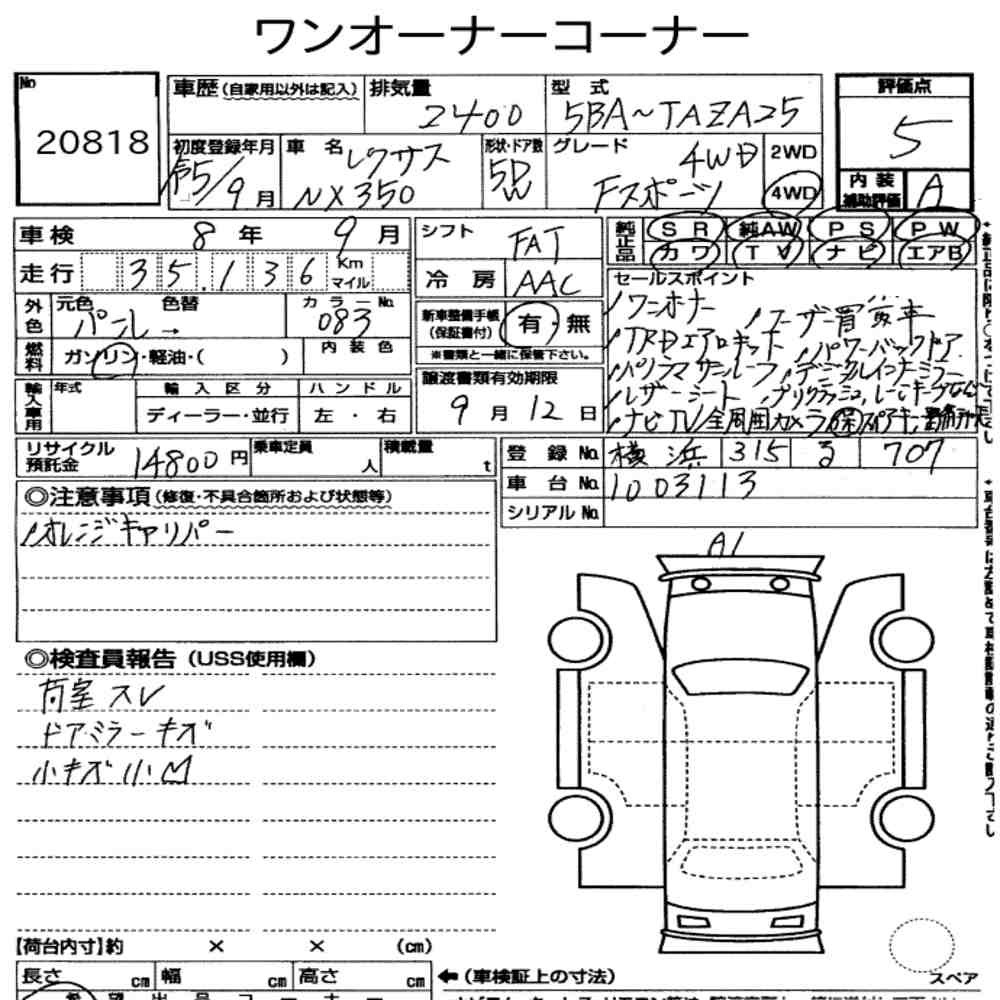 ワンオーナーコーナー
No 20818
車歴 (自家用以外は記入) 排気量 2400 型式 5BA~TAZA25
評価点 5
初度登録年月 R5/9月 車名 レクサス NX350 形状・ドア数 5D W グレード 4WD Fスポーツ 2WD 4WD
内装補助評価 A
車検 8年 9月
走行 35,136 Km マイル
シフト FAT
冷房 AAC
純正品 SR 純AW PS PW
カワ TV ナビ エアB
外色 元色 パール → 色替 カラーNo. 083
燃料 ガソリン・軽油・( ) 内装色
輸入車用 年式 輸入区分 ハンドル
ディーラー・並行 左・右
新車整備手帳 (保証書付) 有・無
※書類と一緒に保管下さい。
譲渡書類有効期限
9月12日
セールスポイント
ワンオーナー ユーザー買取車
TRDエアロキット パワーバックドア
パノラマサンルーフ デジタルインナーミラー
レザーシート プリクラッシュ,レーンキープなど
ナビTV全周囲カメラ 保
リサイクル預託金 14800円 乗車定員 人 積載量 t
登録No. 横浜 315 る 707
車台No. 1003113
シリアルNo.
◎注意事項 (修復・不具合箇所および状態等)
オレンジキャリパー
A1
◎検査員報告 (USS使用欄)
荷室スレ
ドアミラーキズ
小キズ小凹
【荷台内寸】約 × × (cm)
長さ cm 幅 cm 高さ cm
← (車検証上の寸法)
スペア
希望出品コーナー